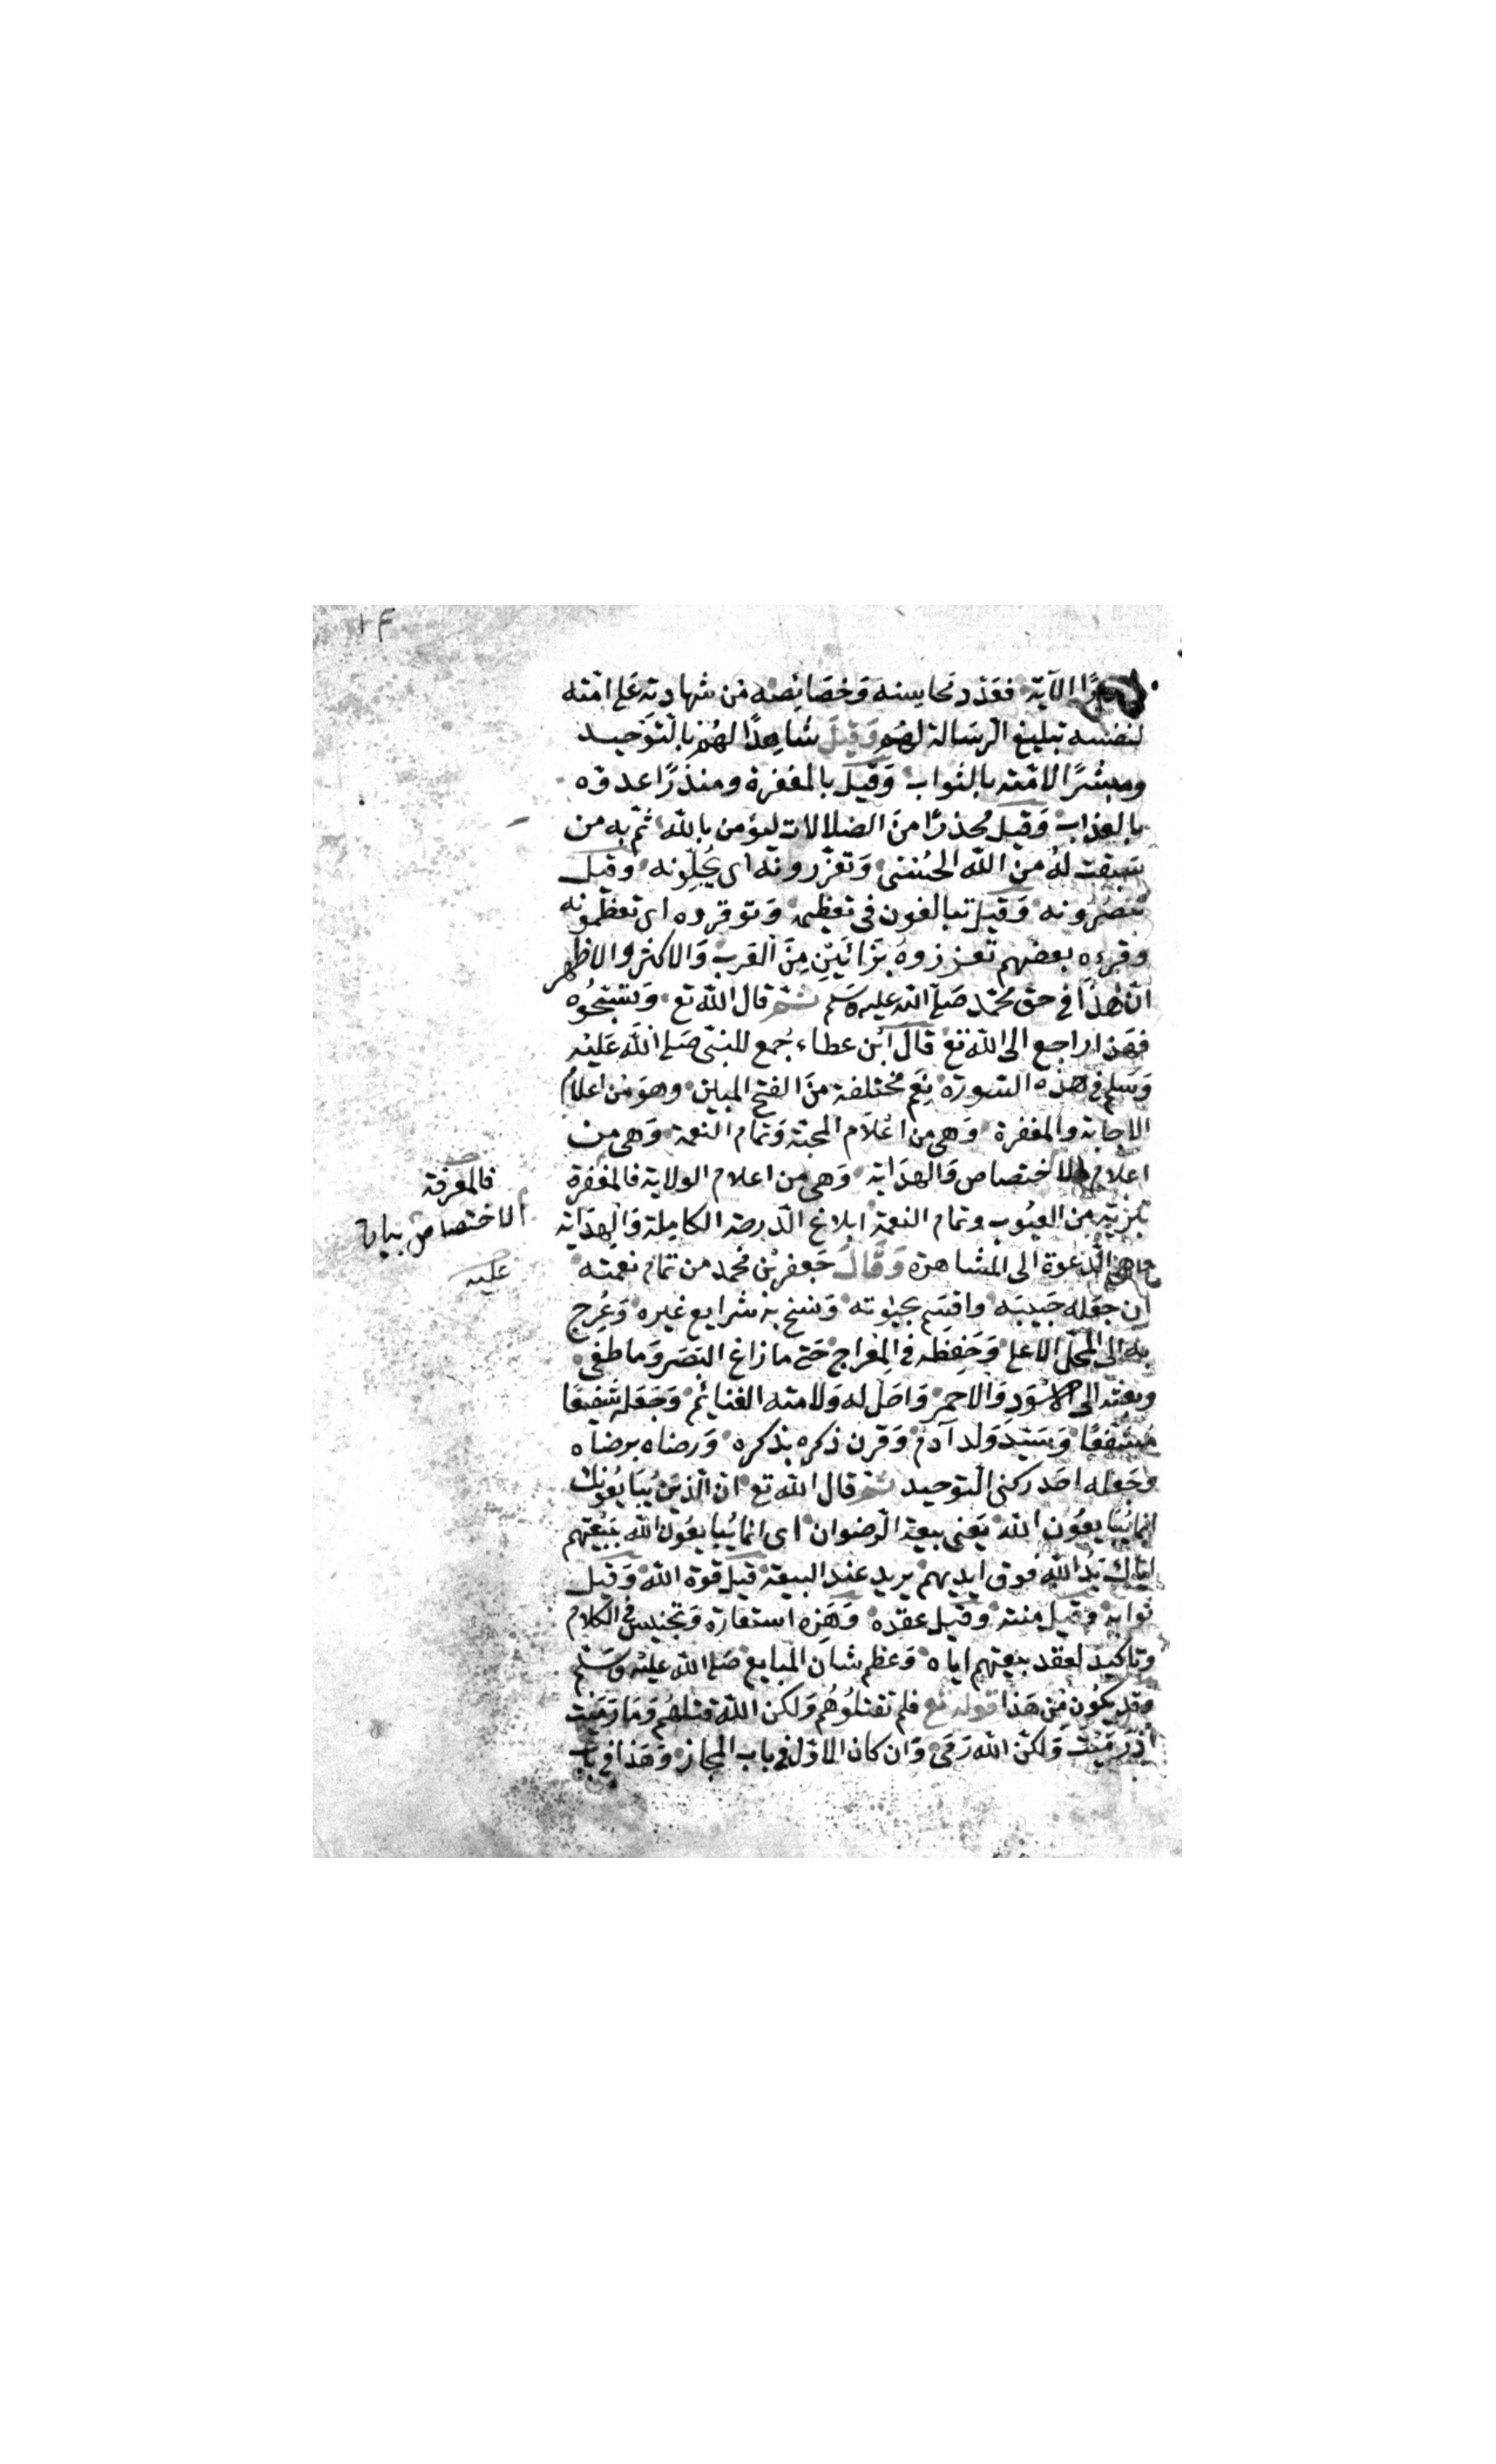 الآية فعدد محاسنه وخصائصه من شهادته على امته
لنفسه تبليغ الرسالة لهم وقيل شاهدًا لهم بالتوحيد
ومبشرًا لامته بالثواب وقيل بالمغفرة ومنذرًا عدوه
بالعذاب وقيل محذرًا من الضلالات ليؤمن بالله ثم به من
سبقت له من الله الحسنى وتعزرونه اى يجلونه وقيل
تنصرونه وقيل تبالغون فى تعظيمه وتوقروه اى تعظمونه
وقرءه بعضهم تعززوه بزائين من العز والاكثر والاظهر
ان هذا فى حق محمد صلى الله عليه وسلم ثم قال الله تع وتسبحوه
فهذا راجع الى الله تع قال ابن عطاء جمع للنبى صلى الله عليه
وسلم فى هذه السورة نعم مختلفة من الفتح المبين وهو من اعلام
الاجابة والمغفرة وهى من اعلام المحبة وتمام النعمة وهى من
اعلام الاختصاص والهداية وهى من اعلام الولاية فالمغفرة
تنزيه من العيوب وتمام النعمة ابلاغ الدرجة الكاملة والهداية
وهى الدعوة الى المشاهدة وقال جعفر بن محمد من تمام نعمته
ان جعله حبيبه واقسم بحيوته ونسخ به شرايع غيره وعرج
به الى المحل الاعلى وحفظه فى المعراج حتى ما زاغ البصر وما طغى
وبعثه الى الاسود والاحمر واحل له ولامته الغنائم وجعله شفيعًا
مشفعًا وسيد ولد آدم وقرن ذكره بذكره ورضاه برضاه
وجعله احد ركنى التوحيد ثم قال الله تع ان الذين يبايعونك
انما يبايعون الله يعنى بيعة الرضوان اى انما يبايعون الله ببيعتهم
اياك يد الله فوق ايديهم يريد عند البيعة قيل قوة الله وقيل
ثوابه وقيل منته وقيل عقده وهذه استعارة وتجنيس فى الكلام
وتاكيد لعقد بيعتهم اياه وعظم شان المبايع صلى الله عليه وسلم
وقد يكون من هذا قوله تع فلم تقتلوهم ولكن الله قتلهم وما رميت
اذ رميت ولكن الله رمى وان كان الاول فى باب المجاز وهذا فى باب
فالمعرفة
الاختصاص
عليه